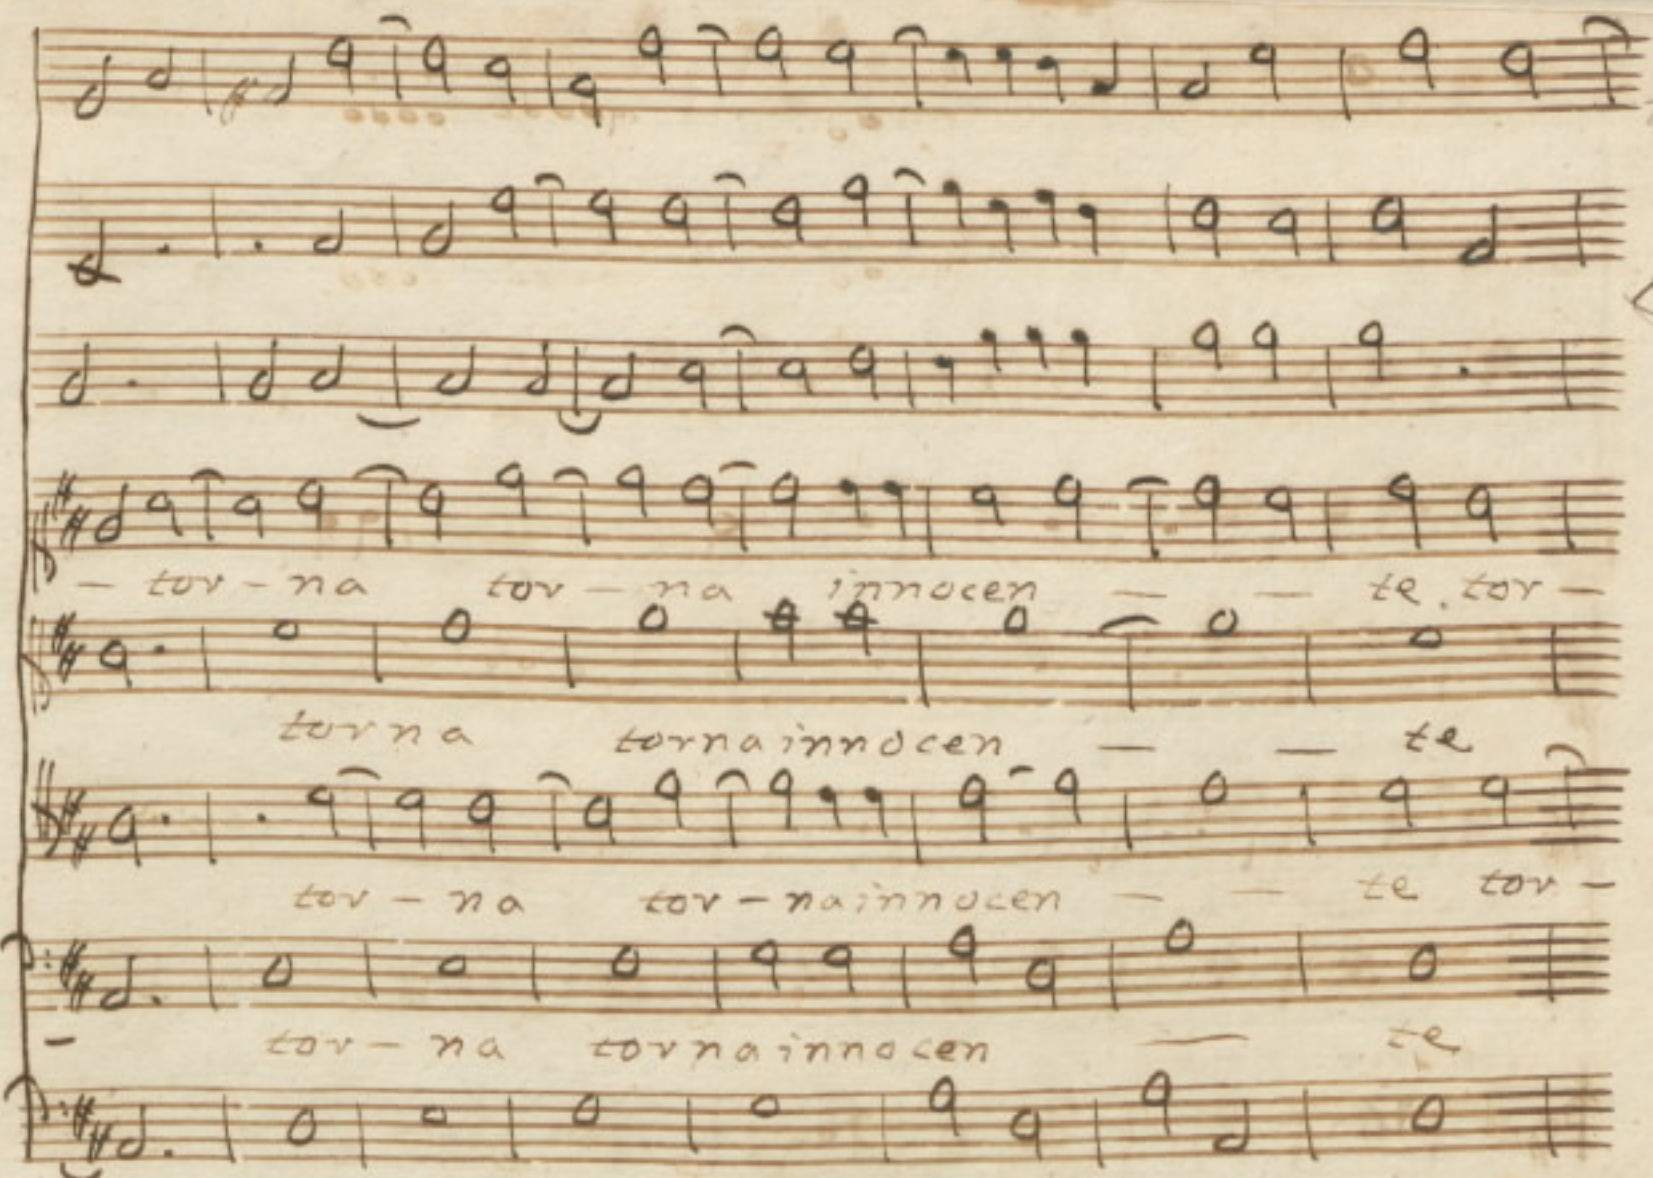 - tor - na tor - na innocen - - te. tor -
torna torna innocen - - te
tor - na tor - na innocen - - te tor -
- tor - na torna innocen - te